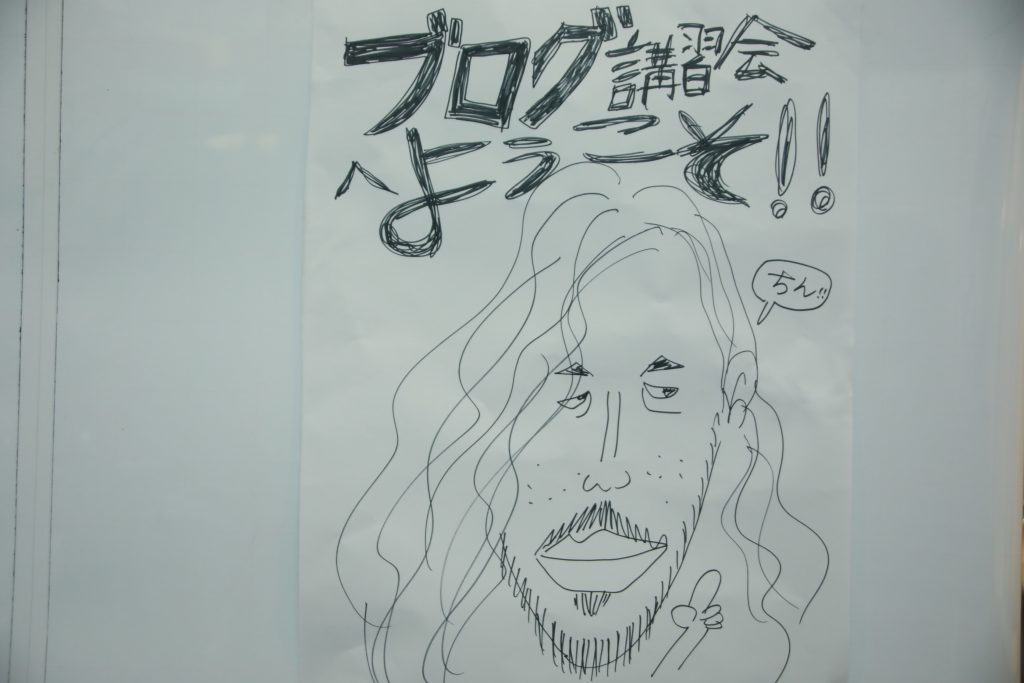 ブログ講習会
へようこそ!!
ちん!!